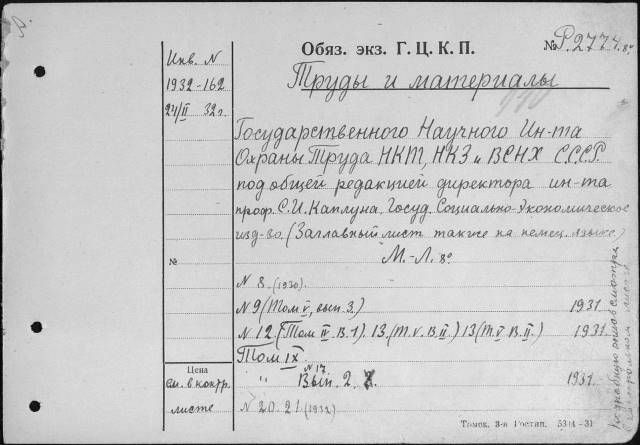 Обяз. экз. Г. Ц. К. П.
№ Р.2774.8º
Труды и материалы
Инв. N
1932-162
24/II 32г.
Государственного Научного Ин-та
Охраны Труда НКТ, НКЗ и ВСНХ С.С.С.Р.
под общей редакцией директора ин-та
проф. С.И. Каплуна. Госуд. Социально-Экономическое
изд-во. (Заглавный лист также на немец. языке)
М.-Л. 8º
№
N 8. (1930).
N 9 (Том V, вып. 3.) 1931
N 12 (Том II В.1). 13. (Т. V. В.II) 13 (Т. V. В.II.) 1931
Том IX.
N 17.
" Вып. 2. 1931
N 20. 21. (1932)
Цена
См. в контр.
листе
Томск. 3-я Гостип. 5314-31